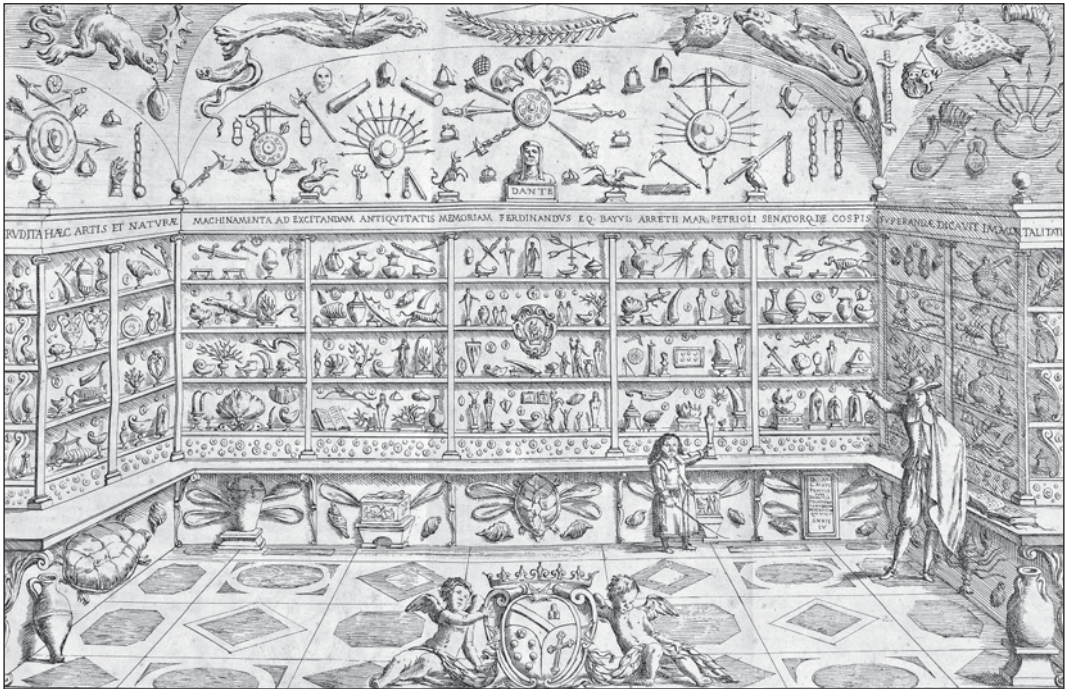 DANTE
RVDITA HÆC ARTIS ET NATVRÆ MACHINAMENTA AD EXCITANDAM ANTIQVITATIS MEMORIAM FERDINANDVS EQ. BAYVL. ARRETII MAR. PETRIOLI SENATORQ. DE COSPIS SVPERANDÆ DICAVIT TALITATI